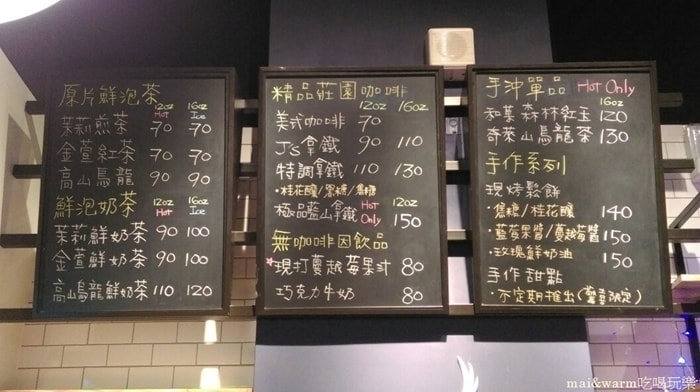 原片鮮泡茶 12oz Hot 16oz Ice
茉莉煎茶 70 70
金萱紅茶 70 70
高山烏龍 90 90
鮮泡奶茶 12oz Hot 16oz Ice
茉莉鮮奶茶 90 100
金萱鮮奶茶 90 100
高山烏龍鮮奶茶 110 120
精品莊園咖啡
12oz 16oz
美式咖啡 70
J's拿鐵 90 110
特調拿鐵 110 130
·桂花釀/黑糖/焦糖
極品藍山拿鐵 Hot Only 12oz 150
無咖啡因飲品
*現打蔓越莓果汁 80
巧克力牛奶 80
手沖單品 Hot Only
16oz
和菓森林紅玉 120
奇萊山烏龍茶 130
手作系列
現烤鬆餅
·焦糖/桂花釀 140
·藍莓果醬/蔓越莓醬 150
·玫瑰鮮奶油 150
手作甜點
·不定期推出(限定)
mai&warm吃喝玩樂